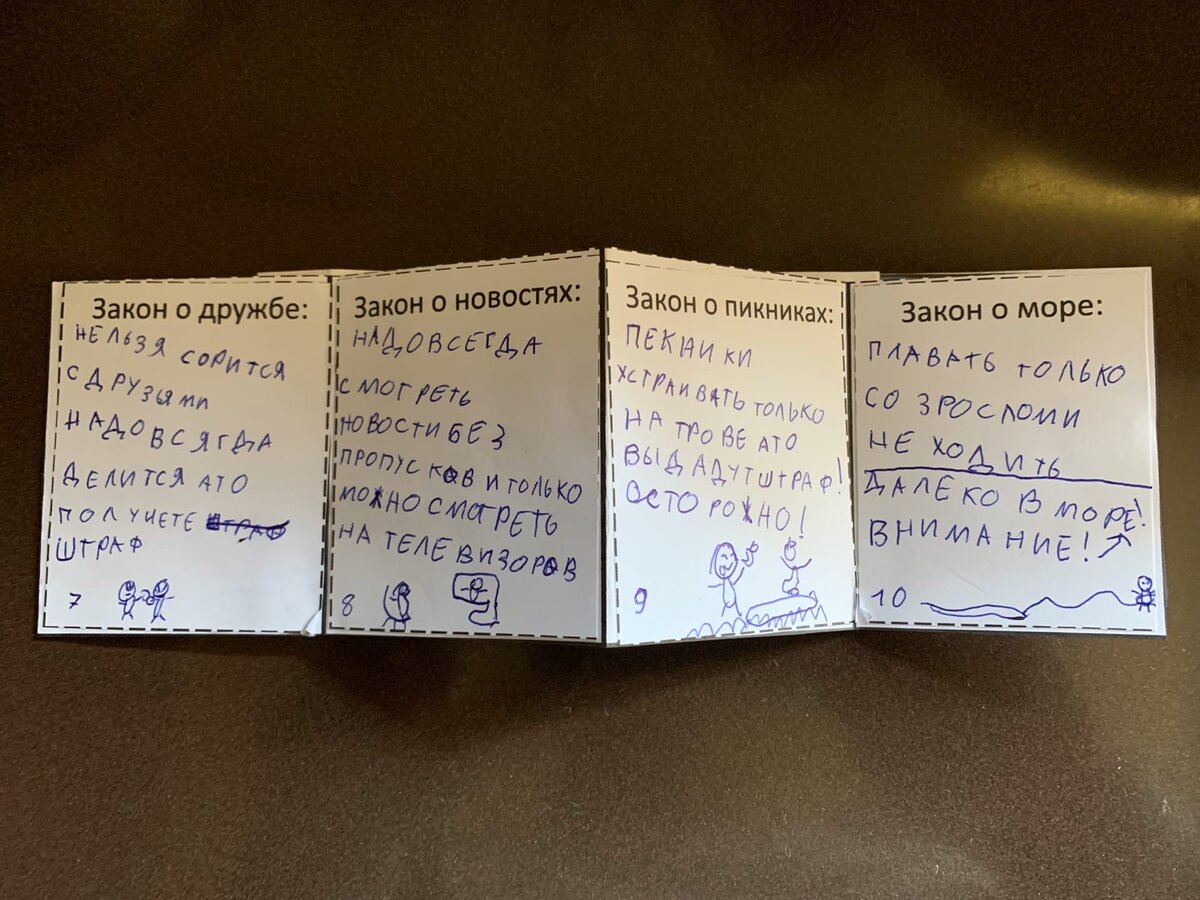 Закон о дружбе:
НЕЛЬЗЯ СОРИТСЯ
С ДРУЗЬЯМИ
НАДО ВСЯГДА
ДЕЛИТСЯ АТО
ПОЛУЧЕТЕ ШТРАФ
ШТРАФ
7
Закон о новостях:
НАДОВСЕГДА
СМОТРЕТЬ
НОВОСТИ БЕЗ
ПРОПУСКОВ И ТОЛЬКО
МОЖНО СМОТРЕТЬ
НА ТЕЛЕВИЗОРОВ
8
Закон о пикниках:
ПЕКНИКИ
УСТРАИВАТЬ ТОЛЬКО
НА ТРОВЕ АТО
ВЫДАДУТ ШТРАФ!
ОСТОРОЖНО!
9
Закон о море:
ПЛАВАТЬ ТОЛЬКО
СО ЗРОСЛОМИ
НЕ ХОДИТЬ
ДАЛЕКО В МОРЕ!
ВНИМАНИЕ!
10